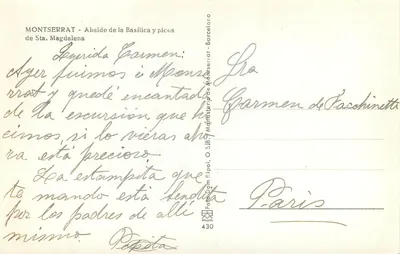 MONTSERRAT - Abside de la Basílica y picos
de Sta. Magdalena
Querida Carmen:
Ayer fuimos a Monse
rrat y quedé encantada
de la excursión que hi
cimos, si lo vieras aho
ra está precioso.
La estampita que
te mando está bendita
por los padres de allí
mismo.
Pepita
Sra
Carmen de Facchinetti
Paris
430